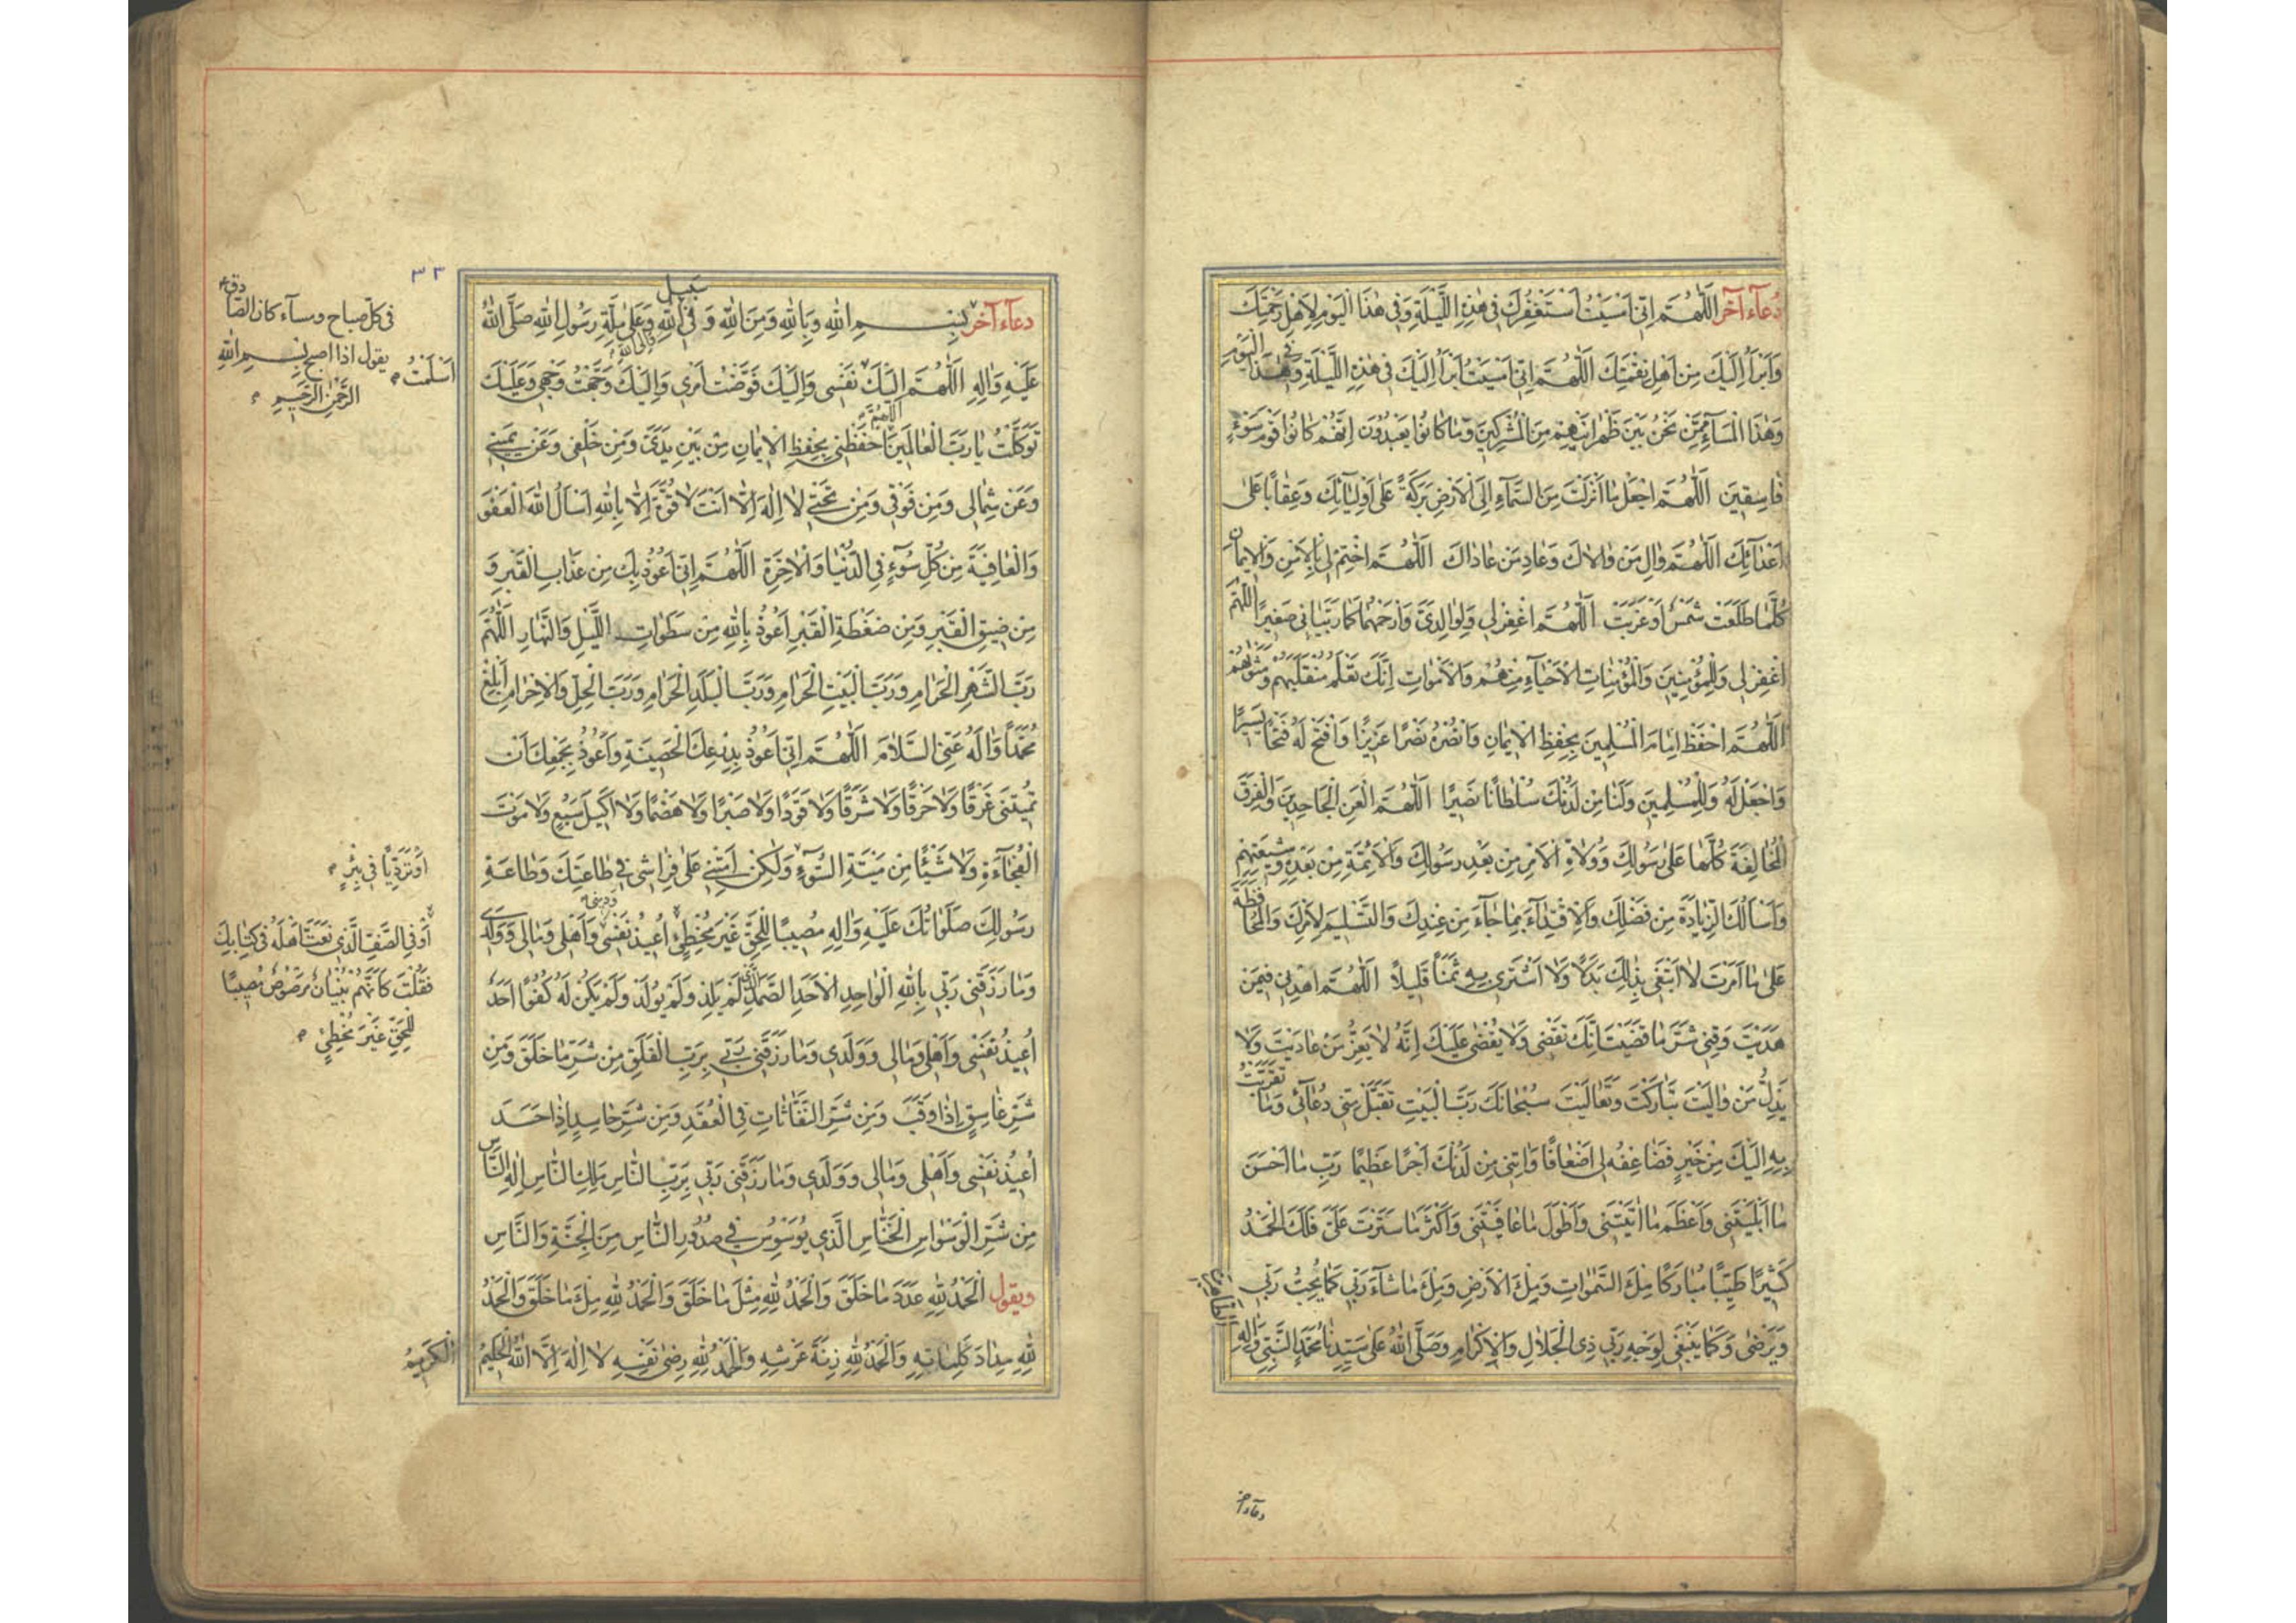 دُعآء آخر اَللّٰهُمَّ اِنّى اَمْسَيْتُ اَسْتَغْفِرُكَ فى هٰذِهِ اللَّيْلَةِ وَفى هٰذَا الْيَوْمِ لِاَهْلِ رَحْمَتِكَ
وَاَبْرَأُ اِلَيْكَ مِنْ اَهْلِ نِقْمَتِكَ اَللّٰهُمَّ اِنّى اَمْسَيْتُ اَبْرَأُ اِلَيْكَ فى هٰذِهِ اللَّيْلَةِ وَفى هٰذَا الْيَوْمِ
وَهٰذَا الْمَسَآءِ مِمَّنْ نَحْنُ بَيْنَ ظَهْرانَيْهِمْ مِنَ الْمُشْرِكينَ وَمَا كانُوا يَعْبُدُونَ اِنَّهُمْ كانُوا قَوْمَ سَوْءٍ
فاسِقينَ اَللّٰهُمَّ اجْعَلْ ما اَنْزَلْتَ مِنَ السَّمآءِ اِلَى الْاَرْضِ بَرَكَةً عَلى اَوْلِيآئِكَ وَعِقاباً عَلى
اَعْدآئِكَ اَللّٰهُمَّ والِ مَنْ والاكَ وَعادِ مَنْ عاداكَ اَللّٰهُمَّ اخْتِمْ لى بِالْاَمْنِ وَالْايمانِ
كُلَّما طَلَعَتْ شَمْسٌ اَوْ غَرَبَتْ اَللّٰهُمَّ اغْفِرْ لى وَلِوالِدَىَّ وَارْحَمْهُما كَما رَبَّيانى صَغيراً اللّٰهُمَّ
اغْفِرْ لى وَلِلْمُؤْمِنينَ وَالْمُؤْمِناتِ الْاَحْيآءِ مِنْهُمْ وَالْاَمْواتِ اِنَّكَ تَعْلَمُ مُتَقَلَّبَهُمْ وَمَثْواهُمْ
اَللّٰهُمَّ احْفَظْ اِمامَ الْمُسْلِمينَ بِحِفْظِ الْايمانِ وَانْصُرْهُ نَصْراً عَزيزاً وَافْتَحْ لَهُ فَتْحاً يَسيراً
وَاجْعَلْ لَهُ وَلِلْمُسْلِمينَ وَلَنا مِنْ لَدُنْكَ سُلْطاناً نَصيراً اَللّٰهُمَّ الْعَنِ الْجاحِدينَ وَالْفِرَقَ
الْمُخالِفَةَ كُلَّها عَلى رَسُولِكَ وَوُلاةِ الْاَمْرِ مِنْ بَعْدِ رَسُولِكَ وَالْاَئِمَّةِ مِنْ بَعْدِهِ وَشيعَتِهِمْ
وَاَسْاَلُكَ الزِّيادَةَ مِنْ فَضْلِكَ وَالْاِقْتِدآءَ بِما جآءَ مِنْ عِنْدِكَ وَالتَّسْليمَ لِاَمْرِكَ وَالْمُحافَظَةَ
عَلى ما اَمَرْتَ لا اَبْتَغى بِذٰلِكَ بَدَلاً وَلا اَشْتَرى بِهِ ثَمَناً قَليلاً اَللّٰهُمَّ اهْدِنى فيمَنْ
هَدَيْتَ وَقِنى شَرَّ ما قَضَيْتَ اِنَّكَ تَقْضى وَلا يُقْضى عَلَيْكَ اِنَّهُ لا يَعِزُّ مَنْ عادَيْتَ وَلا
يَذِلُّ مَنْ والَيْتَ تَبارَكْتَ وَتَعالَيْتَ سُبْحانَكَ رَبَّ الْبَيْتِ تَقَبَّلْ مِنّى دُعآئى وَما تَقَرَّبْتُ
بِهِ اِلَيْكَ مِنْ خَيْرٍ فَضاعِفْهُ لى اَضْعافاً وَاتِنى مِنْ لَدُنْكَ اَجْراً عَظيماً رَبِّ ما اَحْسَنَ
ما اَبْلَيْتَنى وَاَعْظَمَ ما اتَيْتَنى وَاَطْوَلَ ما عافَيْتَنى وَاَكْثَرَ ما سَتَرْتَ عَلَىَّ فَلَكَ الْحَمْدُ
كَثيراً طَيِّباً مُبارَكاً مِلْءَ السَّمٰواتِ وَمِلْءَ الْاَرْضِ وَمِلْءَ ما شآءَ رَبّى كَما يُحِبُّ رَبّى
وَيَرْضى وَكَما يَنْبَغى لِوَجْهِ رَبّى ذِى الْجَلالِ وَالْاِكْرامِ وَصَلَّى اللّٰهُ عَلى سَيِّدِنا مُحَمَّدٍ النَّبِىِّ وَالِهِ
الطّاهِرينَ
دعآء اخر
٣٣
دعآء آخر بِسْمِ اللّٰهِ وَبِاللّٰهِ وَمِنَ اللّٰهِ وَفى سَبيلِ اللّٰهِ وَعَلى مِلَّةِ رَسُولِ اللّٰهِ صَلَّى اللّٰهُ
وَاِلَى اللّٰهِ
عَلَيْهِ وَالِهِ اَللّٰهُمَّ اِلَيْكَ نَفْسى وَاِلَيْكَ فَوَّضْتُ اَمْرى وَاِلَيْكَ وَجَّهْتُ وَجْهى وَعَلَيْكَ
اَسْلَمْتُ
تَوَكَّلْتُ يا رَبَّ الْعالَمينَ اللّٰهُمَّ احْفَظْنى بِحِفْظِ الْايمانِ مِنْ بَيْنِ يَدَىَّ وَمِنْ خَلْفى وَعَنْ يَمينى
وَعَنْ شِمالى وَمِنْ فَوْقى وَمِنْ تَحْتى لا اِلٰهَ اِلّا اَنْتَ لا قُوَّةَ اِلّا بِاللّٰهِ اَسْاَلُ اللّٰهَ الْعَفْوَ
وَالْعافِيَةَ مِنْ كُلِّ سُوٓءٍ فِى الدُّنْيا وَالْاخِرَةِ اَللّٰهُمَّ اِنّى اَعُوذُ بِكَ مِنْ عَذابِ الْقَبْرِ وَ
مِنْ ضيقِ الْقَبْرِ وَمِنْ ضَغْطَةِ الْقَبْرِ اَعُوذُ بِاللّٰهِ مِنْ سَطَواتِ اللَّيْلِ وَالنَّهارِ اللّٰهُمَّ
رَبَّ الشَّهْرِ الْحَرامِ وَرَبَّ الْبَيْتِ الْحَرامِ وَرَبَّ الْبَلَدِ الْحَرامِ وَرَبَّ الْحِلِّ وَالْاِحْرامِ اَبْلِغْ
مُحَمَّداً وَالَهُ عَنِّى السَّلامَ اَللّٰهُمَّ اِنّى اَعُوذُ بِدِرْعِكَ الْحَصينَةِ وَاَعُوذُ بِجَمْعِكَ اَنْ
تُميتَنى غَرَقاً وَلا حَرَقاً وَلا شَرَقاً وَلا قَوَداً وَلا صَبْراً وَلا هَضْماً وَلا اَكيلَ سَبُعٍ وَلا مَوْتَ
الْفُجآءَةِ وَلا شَيْئاً مِنْ ميتَةِ السُّوٓءِ وَلٰكِنْ اَمِتْنى عَلى فِراشى فى طاعَتِكَ وَطاعَةِ
رَسُولِكَ صَلَواتُكَ عَلَيْهِ وَالِهِ مُصيباً لِلْحَقِّ غَيْرَ مُخْطِئٍ اُعيذُ نَفْسى وَاَهْلى وَمالى وَوَلَدى
وَما رَزَقَنى رَبّى بِاللّٰهِ الْواحِدِ الْاَحَدِ الصَّمَدِ الَّذى لَمْ يَلِدْ وَلَمْ يُولَدْ وَلَمْ يَكُنْ لَهُ كُفُواً اَحَدٌ
اُعيذُ نَفْسى وَاَهْلى وَمالى وَوَلَدى وَما رَزَقَنى رَبّى بِرَبِّ الْفَلَقِ مِنْ شَرِّ ما خَلَقَ وَمِنْ
شَرِّ غاسِقٍ اِذا وَقَبَ وَمِنْ شَرِّ النَّفّاثاتِ فِى الْعُقَدِ وَمِنْ شَرِّ حاسِدٍ اِذا حَسَدَ
اُعيذُ نَفْسى وَاَهْلى وَمالى وَوَلَدى وَما رَزَقَنى رَبّى بِرَبِّ النّاسِ مَلِكِ النّاسِ اِلٰهِ النّاسِ
مِنْ شَرِّ الْوَسْواسِ الْخَنّاسِ الَّذى يُوَسْوِسُ فى صُدُورِ النّاسِ مِنَ الْجِنَّةِ وَالنّاسِ
ويقول اَلْحَمْدُ لِلّٰهِ عَدَدَ ما خَلَقَ وَالْحَمْدُ لِلّٰهِ مِثْلَ ما خَلَقَ وَالْحَمْدُ لِلّٰهِ مِلْءَ ما خَلَقَ وَالْحَمْدُ
لِلّٰهِ مِدادَ كَلِماتِهِ وَالْحَمْدُ لِلّٰهِ زِنَةَ عَرْشِهِ وَالْحَمْدُ لِلّٰهِ رِضى نَفْسِهِ لا اِلٰهَ اِلَّا اللّٰهُ الْحَليمُ
الْكَريمُ
فى كلّ صباح ومسآء كان الصّادق ع
يقول اذا اصبح بِسْمِ اللّٰهِ
الرَّحْمٰنِ الرَّحيمِ
اَوْ تَرَدِّياً فى بِئْرٍ
اَوْ فِى الصَّفِّ الَّذى نَعَتَّ اَهْلَهُ فى كِتابِكَ
فَقُلْتَ كَاَنَّهُمْ بُنْيانٌ مَرْصُوصٌ مُصيباً
لِلْحَقِّ غَيْرَ مُخْطِئٍ